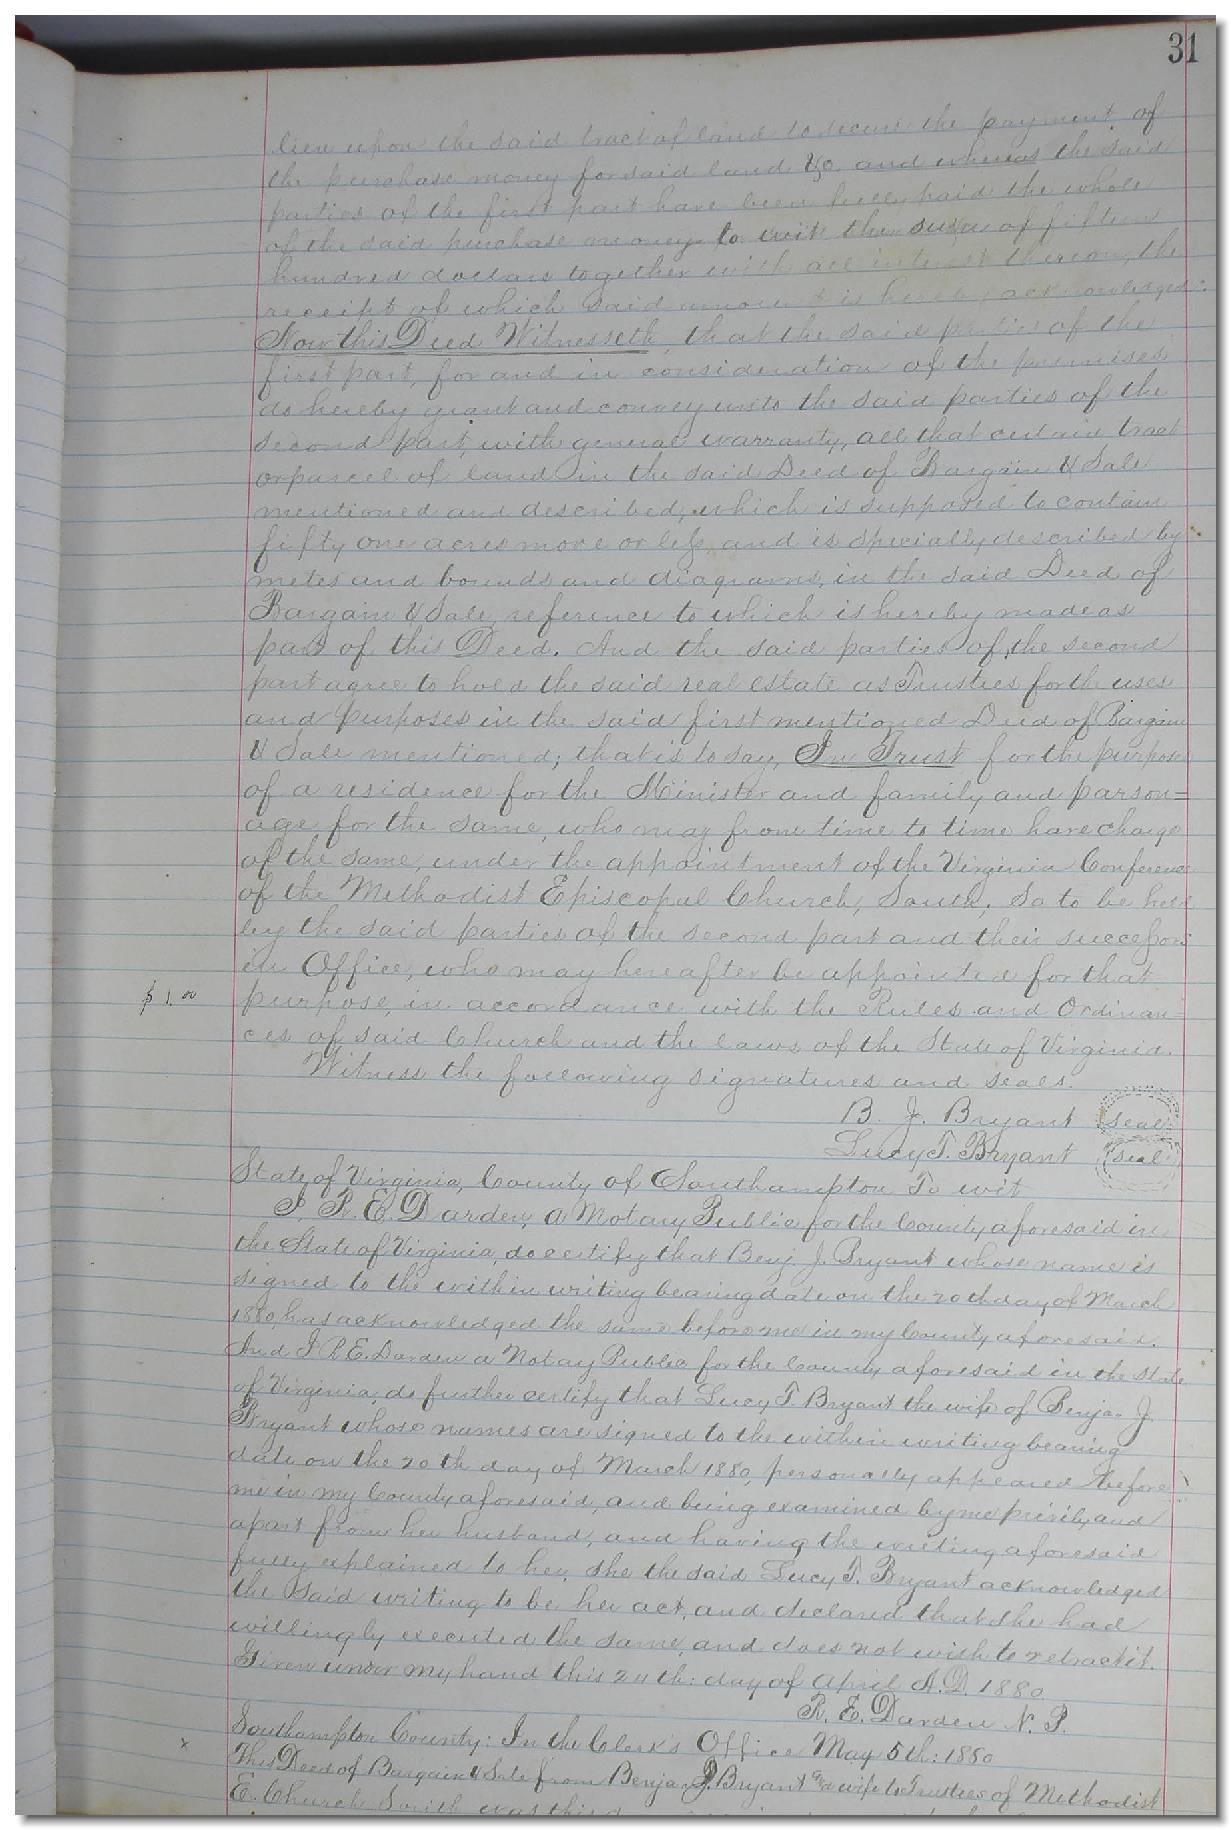 31
lien upon the said tract of land to secure the payment of
the purchase money for said land &c. and whereas the said
parties of the first part have been fully paid the whole
of the said purchase money to wit the sum of fifteen
hundred dollars together with all interest thereon, the
receipt of which said amount is hereby acknowledged:
Now this Deed Witnesseth, that the said parties of the
first part, for and in consideration of the premises
do hereby grant and convey unto the said parties of the
second part, with general warranty, all that certain tract
or parcel of land in the said Deed of Bargain & Sale
mentioned and described, which is supposed to contain
fifty one acres more or less, and is specially described by
metes and bounds and diagrams, in the said Deed of
Bargain & Sale, reference to which is hereby made as
part of this Deed. And the said parties of the second
part agree to hold the said real estate as Trustees for the uses
and purposes in the said first mentioned Deed of Bargain
& Sale mentioned; that is to say, In Trust for the purpose
of a residence for the Minister and family and parson=
age for the same, who may from time to time have charge
of the same, under the appointment of the Virginia Conference
of the Methodist Episcopal Church, South, So to be held
by the said parties of the second part and their successors
in Office, who may hereafter be appointed for that
$1.00 purpose, in accordance with the Rules and Ordinan=
ces of said Church and the laws of the State of Virginia.
Witness the following signatures and seals.
B. J. Bryant (seal)
Lucy T. Bryant (seal)
State of Virginia, County of Southampton To wit
I, R. E. Darden, a Notary Public for the County aforesaid in
the State of Virginia, do certify that Benj. J. Bryant whose name is
signed to the within writing bearing date on the 20th day of March
1880, has acknowledged the same before me in my County aforesaid.
And I R. E. Darden a Notay Public for the County aforesaid in the State
of Virginia, do further certify that Lucy T. Bryant the wife of Benja. J.
Bryant whose names are signed to the within writing bearing
date on the 20th day of March 1880, personally appeared before
me in my County aforesaid, and being examined by me privily and
apart from her husband, and having the writing aforesaid
fully explained to her, she the said Lucy T. Bryant acknowledged
the said writing to be her act, and declared that she had
willingly executed the same, and does not wish to retract it.
Given under my hand this 24th: day of April A.D. 1880.
R. E. Darden N. P.
Southampton County: In the Clerk's Office May 5th: 1880
x This Deed of Bargain & Sale from Benja. J. Bryant and wife to Trustees of Methodist
E. Church South was this